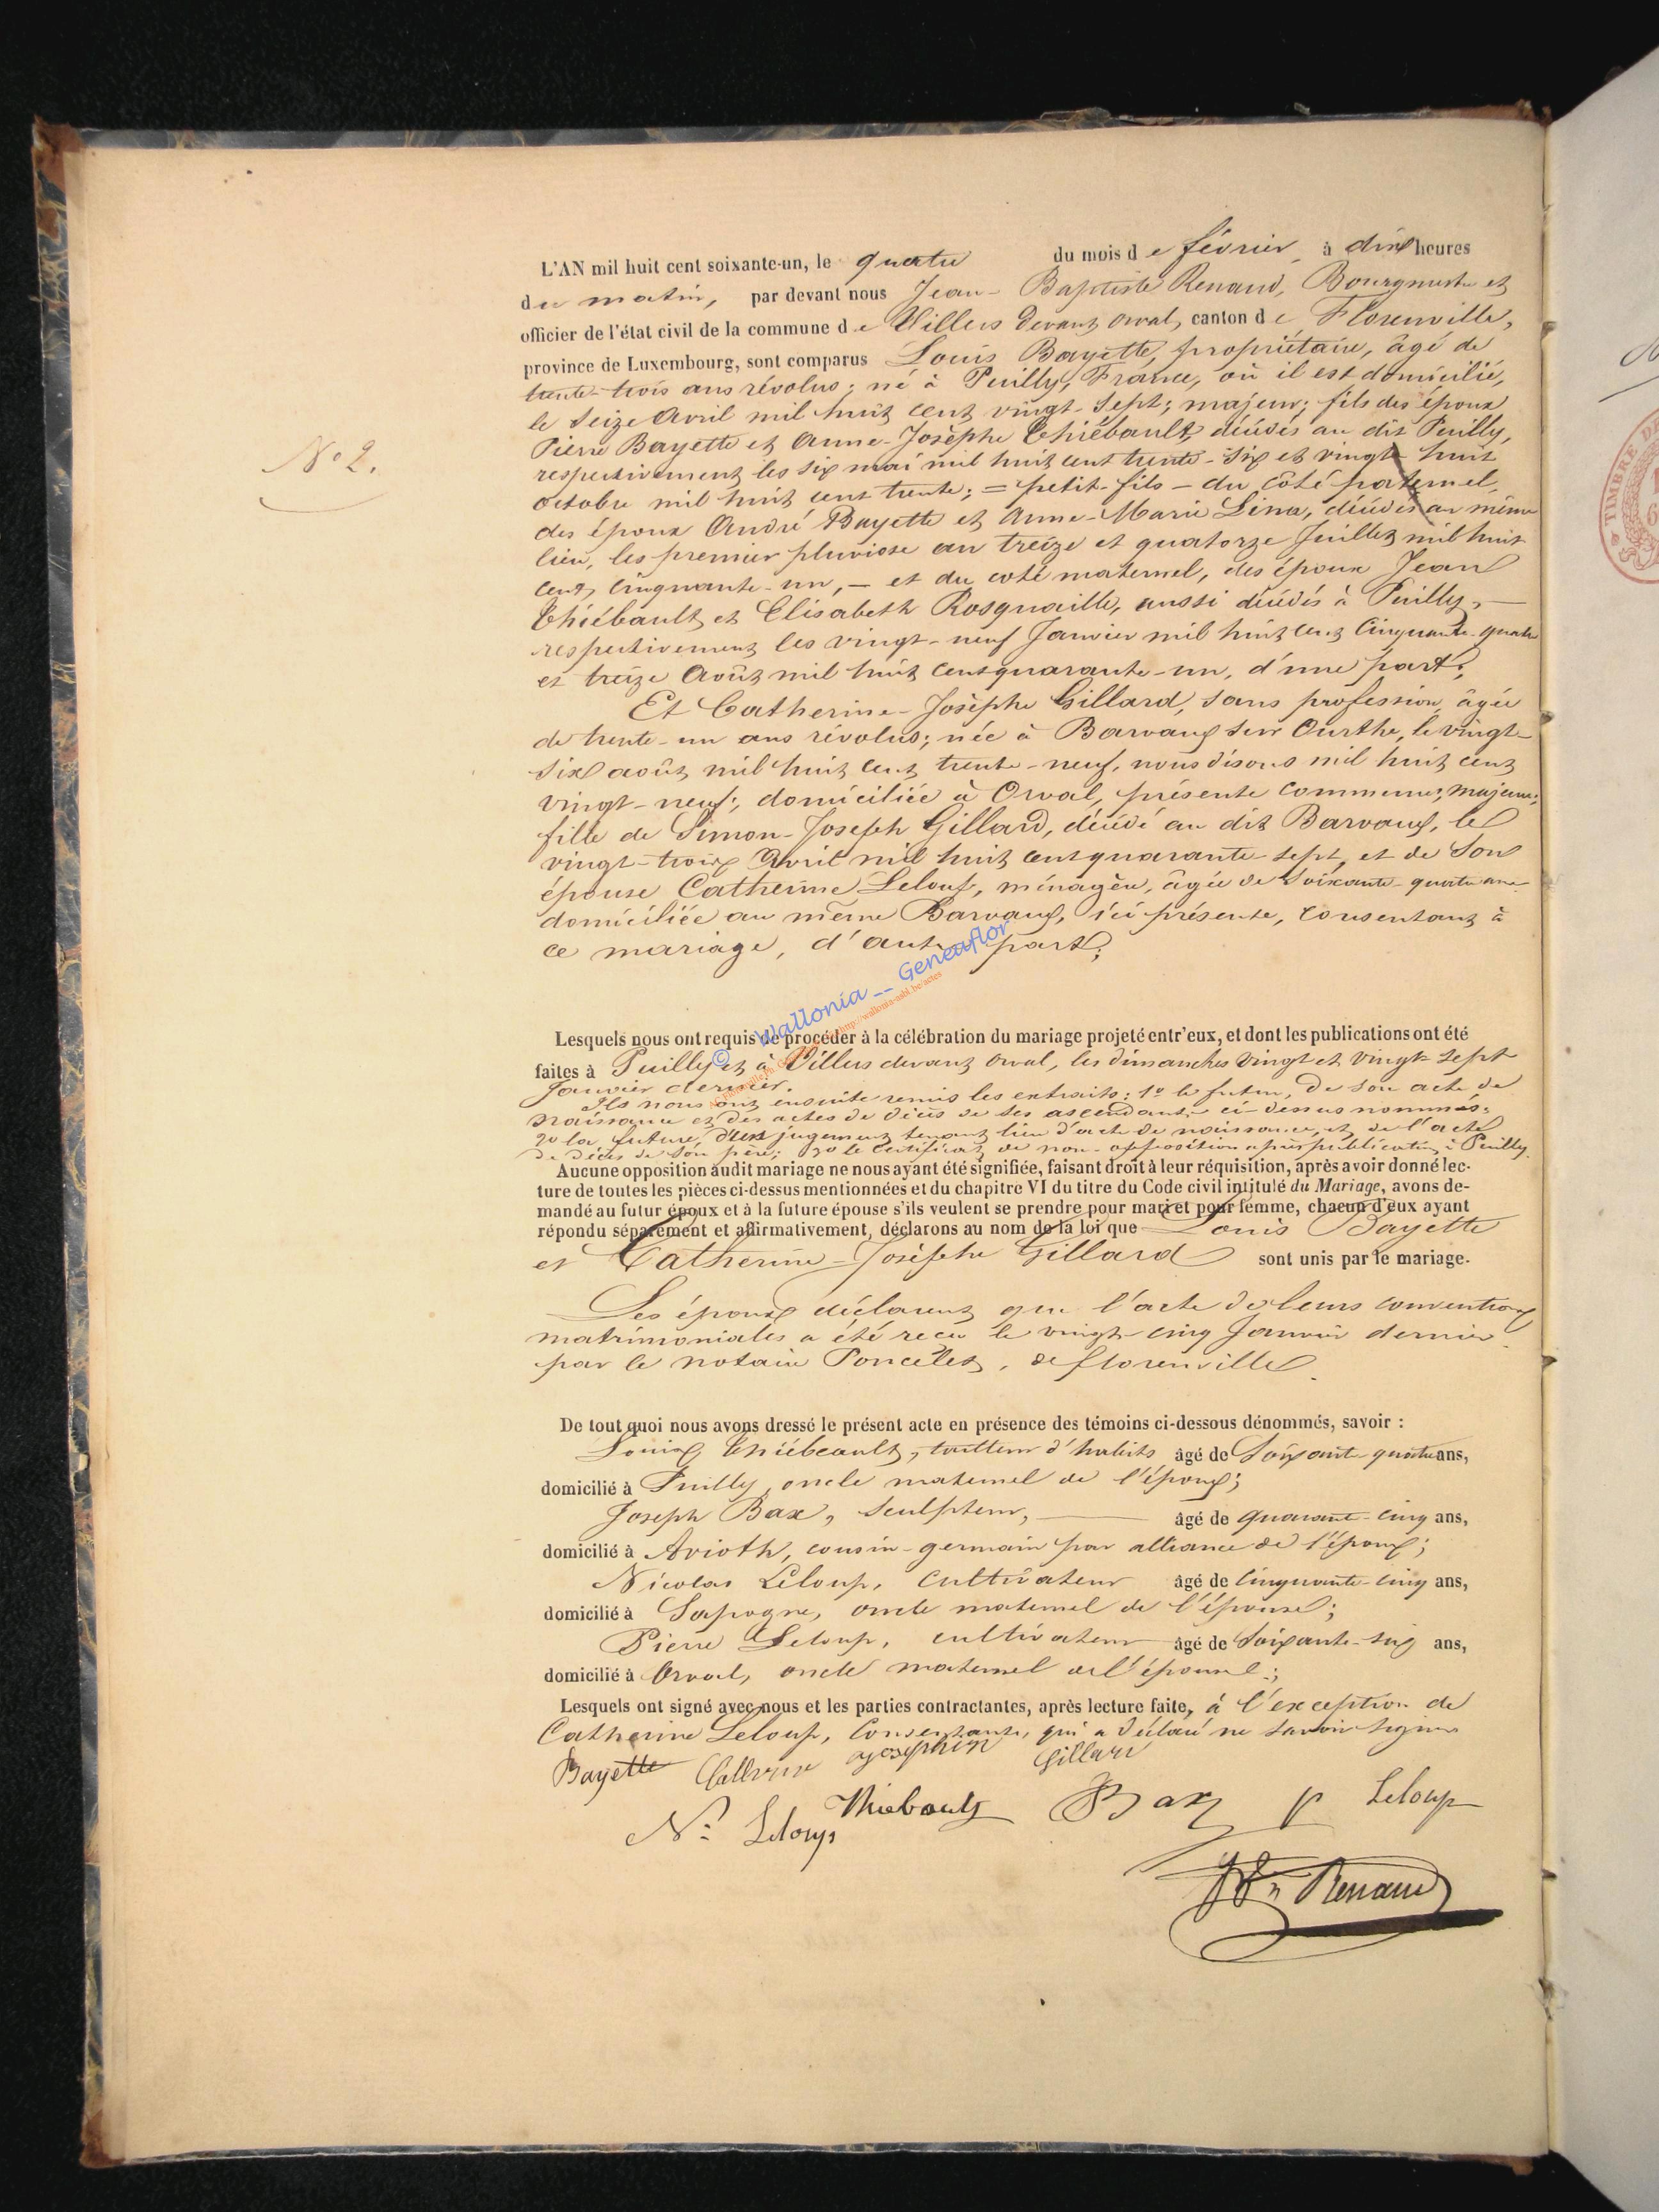 L'AN mil huit cent soixante-un, le quatre du mois de février, à dix heures
du matin, par devant nous Jean-Baptiste Renaud, Bourgmestre et
officier de l'état civil de la commune de Villers devant Orval, canton de Florenville,
province de Luxembourg, sont comparus Louis Bayette, propriétaire, âgé de
trente-trois ans révolus; né à Puilly, France, où il est domicilié,
le seize Avril mil huit cent vingt-sept; majeur; fils des époux
Pierre Bayette et Anne-Josèphe Thiébault, décédés au dit Puilly,
respectivement les six mai mil huit cent trente-six et vingt-huit
octobre mil huit cent trente; = petit-fils - du côté paternel,
des époux André Bayette et Anne-Marie décédés au même
lieu, les premier pluviose an treize et quatorze Juillet mil huit
cent cinquante-un, - et du coté maternel, des époux Jean
Thiébault et Elisabeth Rosquaille, aussi décédés à Puilly, -
respectivement les vingt-neuf Janvier mil huit cent cinquante-quatre
et treize Août mil huit cent quarante-un, d'une part;
Et Catherine-Josèphe Gillard, sans profession, âgée
de trente-un ans révolus; née à Barvaux sur Ourthe, le vingt-
six août mil huit cent trente-neuf, nous disons mil huit cent
vingt-neuf; domiciliée à Orval, présente commune; majeure;
fille de Simon-Joseph Gillard, décédé au dit Barvaux, le
vingt-trois Avril mil huit cent quarante-sept, et de son
épouse Catherine Leloup, ménagère, âgée de soixante-quatre ans
domiciliée au même Barvaux, ici présente, consentant à
ce mariage, d'autre part;
© Wallonia -- Geneaflor
http://wallonia-asbl.be/actes
Lesquels nous ont requis de procéder à la célébration du mariage projeté entr'eux, et dont les publications ont été
faites à Puilly et à Villers devant Orval, les dimanches vingt et vingt sept
Janvier dernier.
Ils nous ont ensuite remis les extraits: 1º le futur, de son acte de
naissance et des actes de décès de ses ascendants ci-dessus nommés;
2º la future, d'un jugement tenant lieu d'acte de naissance, et de l'acte
de décès de son père; 3º le certificat de non-opposition après publication à Puilly.
Aucune opposition audit mariage ne nous ayant été signifiée, faisant droit à leur réquisition, après avoir donné lec-
ture de toutes les pièces ci-dessus mentionnées et du chapitre VI du titre du Code civil intitulé du Mariage, avons de-
mandé au futur époux et à la future épouse s'ils veulent se prendre pour mari et pour femme, chacun d'eux ayant
répondu séparément et affirmativement, déclarons au nom de la loi que Louis Bayette
et Catherine-Josèphe Gillard sont unis par le mariage.
Les époux déclarent que l'acte de leurs conventions
matrimoniales a été reçu le vingt-cinq Janvier dernier
par le notaire Poncelet, de florenville.
De tout quoi nous avons dressé le présent acte en présence des témoins ci-dessous dénommés, savoir :
Louis Thiébeault, tailleur d'habits âgé de Soixante-quatre ans,
domicilié à Puilly, oncle maternel de l'époux;
Joseph Bax, sculpteur, âgé de quarante-cinq ans,
domicilié à Avioth, cousin-germain par alliance de l'époux;
Nicolas Leloup, cultivateur âgé de cinquante-cinq ans,
domicilié à Sapogne, oncle maternel de l'épouse;
Pierre Leloup, cultivateur âgé de soixante-six ans,
domicilié à Orval, oncle maternel de l'épouse;
Lesquels ont signé avec nous et les parties contractantes, après lecture faite, à l'exception de
Catherine Leloup, consentante, qui a déclaré ne savoir signer
Bayette Catherine Josephine Gillard
Thiebault Bax P Leloup
N. Leloup
Renaud
Nº 2.
TIMBRE DE